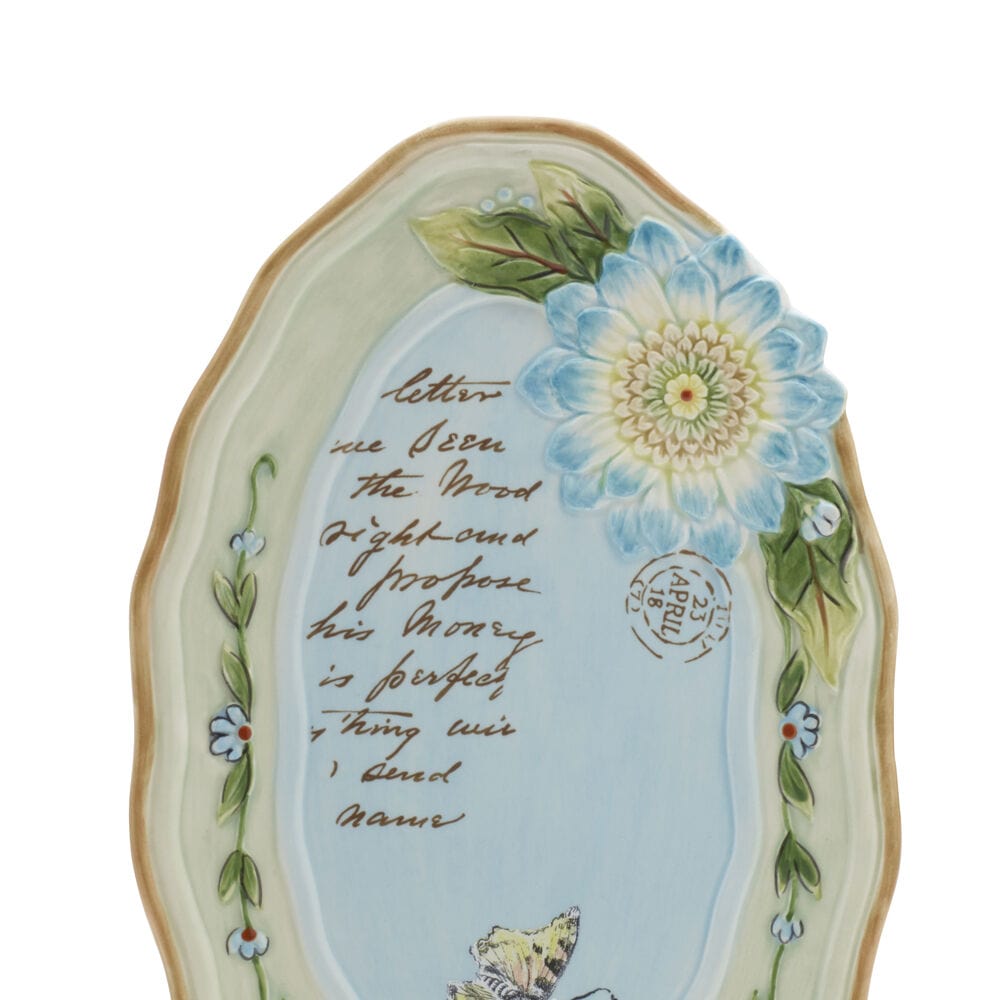 letter
been
the Wood
right and
propose
his Money
is perfect
thing
send
name
23
APRIL
18